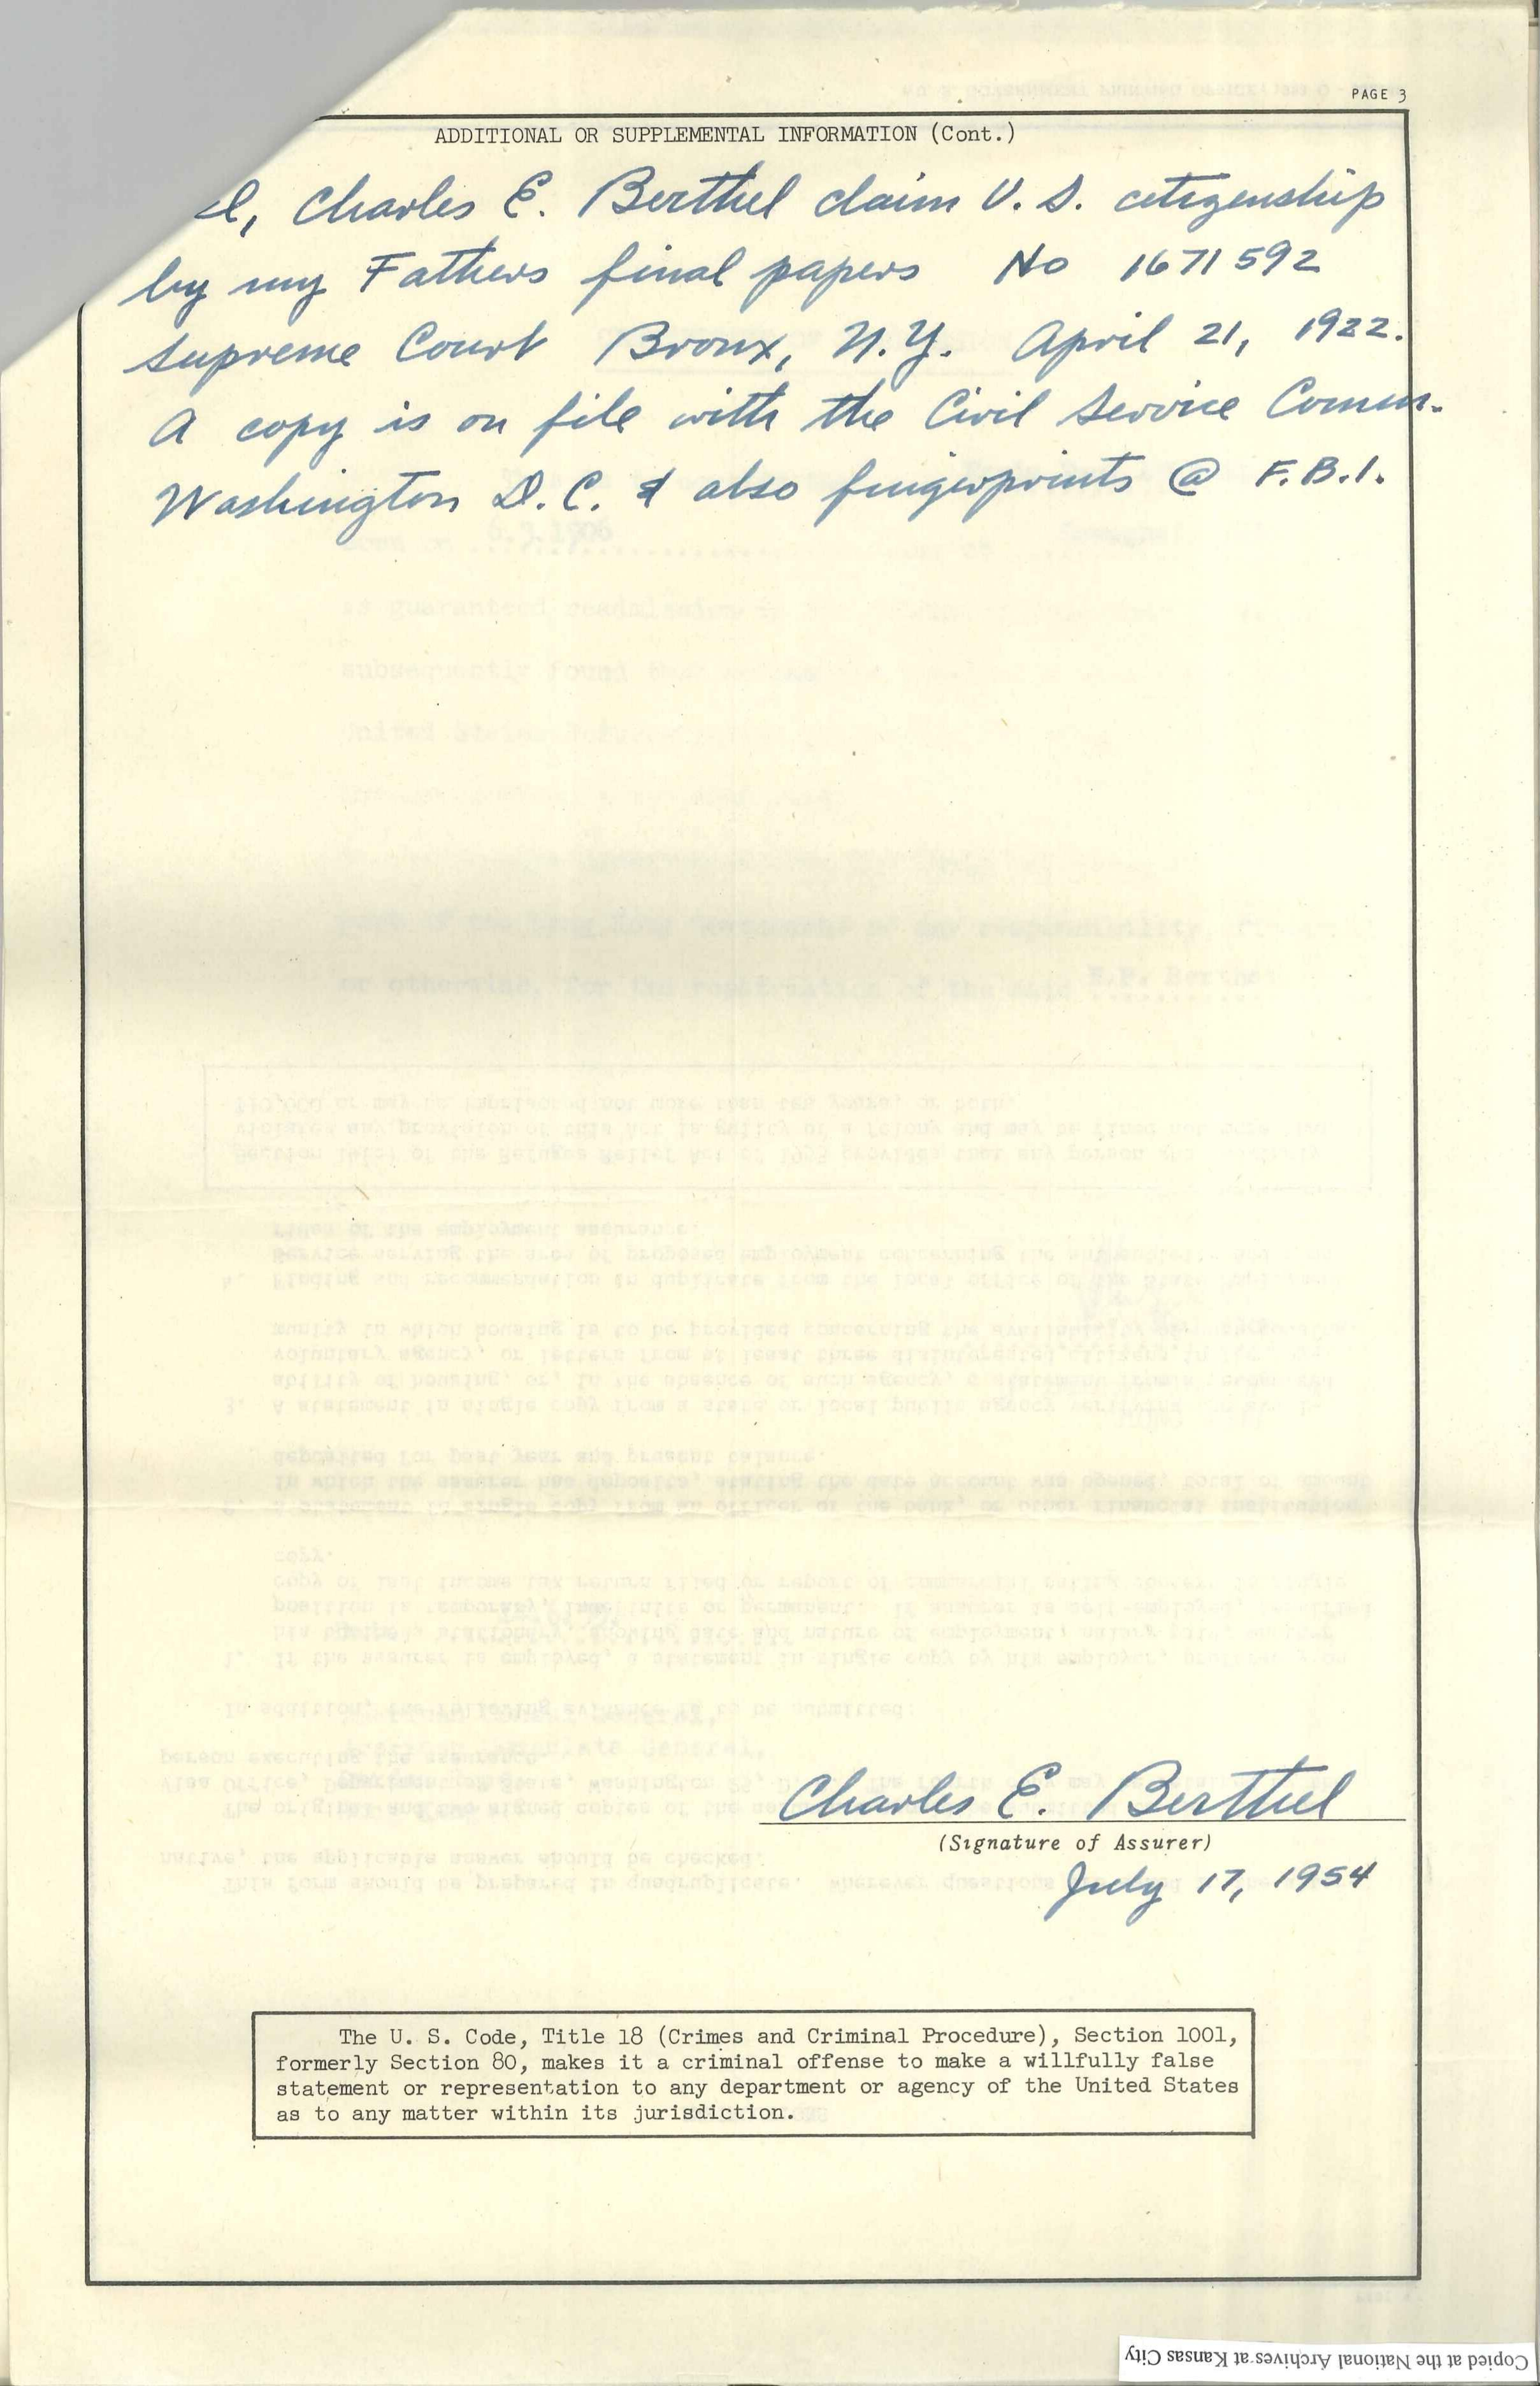 PAGE 3
ADDITIONAL OR SUPPLEMENTAL INFORMATION (Cont.)
I, Charles E. Berthel claim U. S. citizenship
by my Fathers final papers No 1671592
Supreme Court Bronx, N.Y. April 21, 1922.
A copy is on file with the Civil Service Comm.
Washington D.C. & also fingerprints @ F.B.I.
Charles E. Berthel
(Signature of Assurer)
July 17, 1954
The U. S. Code, Title 18 (Crimes and Criminal Procedure), Section 1001,
formerly Section 80, makes it a criminal offense to make a willfully false
statement or representation to any department or agency of the United States
as to any matter within its jurisdiction.
Copied at the National Archives at Kansas City